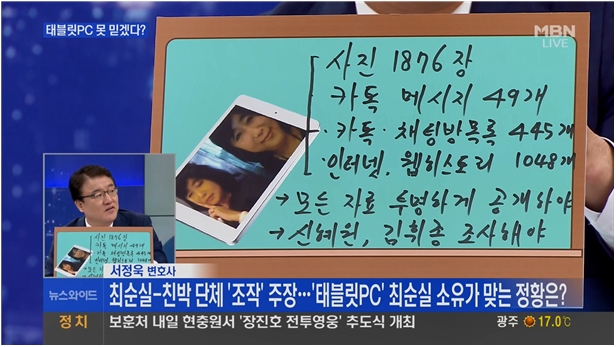 태블릿PC 못 믿겠다?
MBN
LIVE
사진 1876장
카톡 메시지 49개
· 카톡·채팅방목록 445개
· 인터넷, 웹히스토리 1048개
→ 모든 자료 투명하게 공개하야
→ 신혜원, 김휘종 조사해야
서정욱 변호사
뉴스와이드
최순실-친박 단체 '조작' 주장…'태블릿PC' 최순실 소유가 맞는 정황은?
정치
보훈처 내일 현충원서 '장진호 전투영웅' 추도식 개최
광주 17.0℃